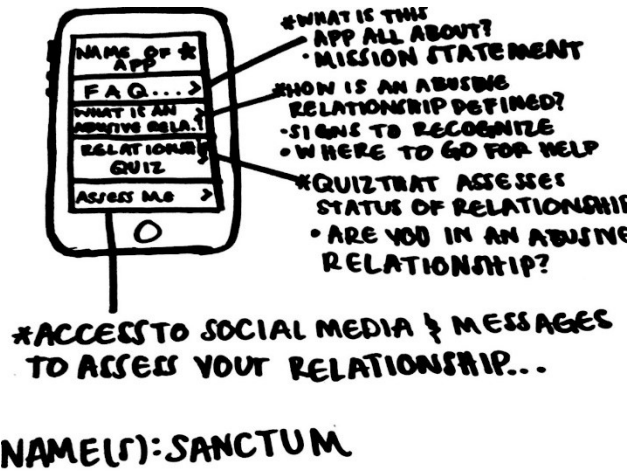 NAME OF *
APP
FAQ...>
WHAT IS AN
ABUSIVE RELA.. >
RELATIONSHIP
QUIZ >
ASSESS ME >
*WHAT IS THIS
APP ALL ABOUT?
• MISSION STATEMENT
*HOW IS AN ABUSIVE
RELATIONSHIP DEFINED?
• SIGNS TO RECOGNIZE
• WHERE TO GO FOR HELP
*QUIZ THAT ASSESSES
STATUS OF RELATIONSHIP
• ARE YOU IN AN ABUSIVE
RELATIONSHIP?
*ACCESS TO SOCIAL MEDIA & MESSAGES
TO ASSESS YOUR RELATIONSHIP...
NAME(S): SANCTUM